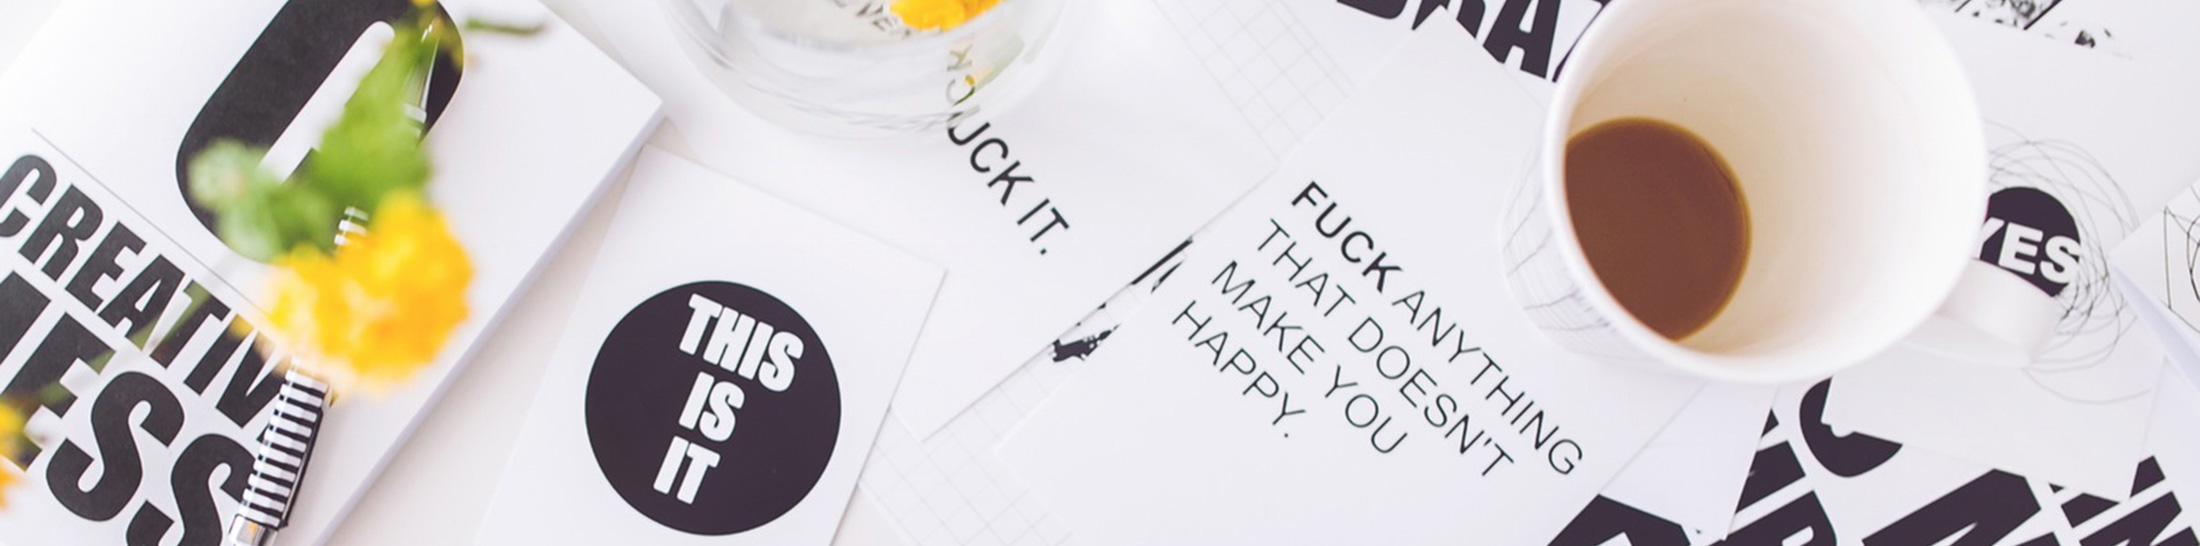 CREATIV
MESS
THIS
IS
IT
UCK IT.
FUCK ANYTHING
THAT DOESN'T
MAKE YOU
HAPPY.
YES